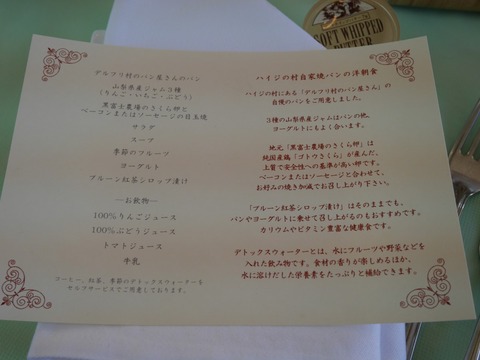 SOFT WHIPPED
BUTTER
デルフリ村のパン屋さんのパン
山梨県産ジャム3種
（りんご・いちご・ぶどう）
黒富士農場のさくら卵と
ベーコンまたはソーセージの目玉焼
サラダ
スープ
季節のフルーツ
ヨーグルト
プルーン紅茶シロップ漬け
―お飲物―
100%りんごジュース
100%ぶどうジュース
トマトジュース
牛乳
コーヒー、紅茶、季節のデトックスウォーターを
セルフサービスでご用意しております。
ハイジの村自家焼パンの洋朝食
ハイジの村にある「デルフリ村のパン屋さん」の
自慢のパンをご用意しました。
3種の山梨県産ジャムはパンの他、
ヨーグルトにもよく合います。
地元「黒富士農場のさくら卵」は
純国産鶏「ゴトウさくら」が産んだ、
上質で安全性への基準が高い卵です。
ベーコンまたはソーセージと合わせて、
お好みの焼き加減でお召し上がり下さい。
「プルーン紅茶シロップ漬け」はそのままでも、
パンやヨーグルトに乗せて召し上がるのもおすすめです。
カリウムやビタミン豊富な健康食です。
デトックスウォーターとは、水にフルーツや野菜などを
入れた飲み物です。食材の香りが楽しめるほか、
水に溶けだした栄養素をたっぷりと補給できます。